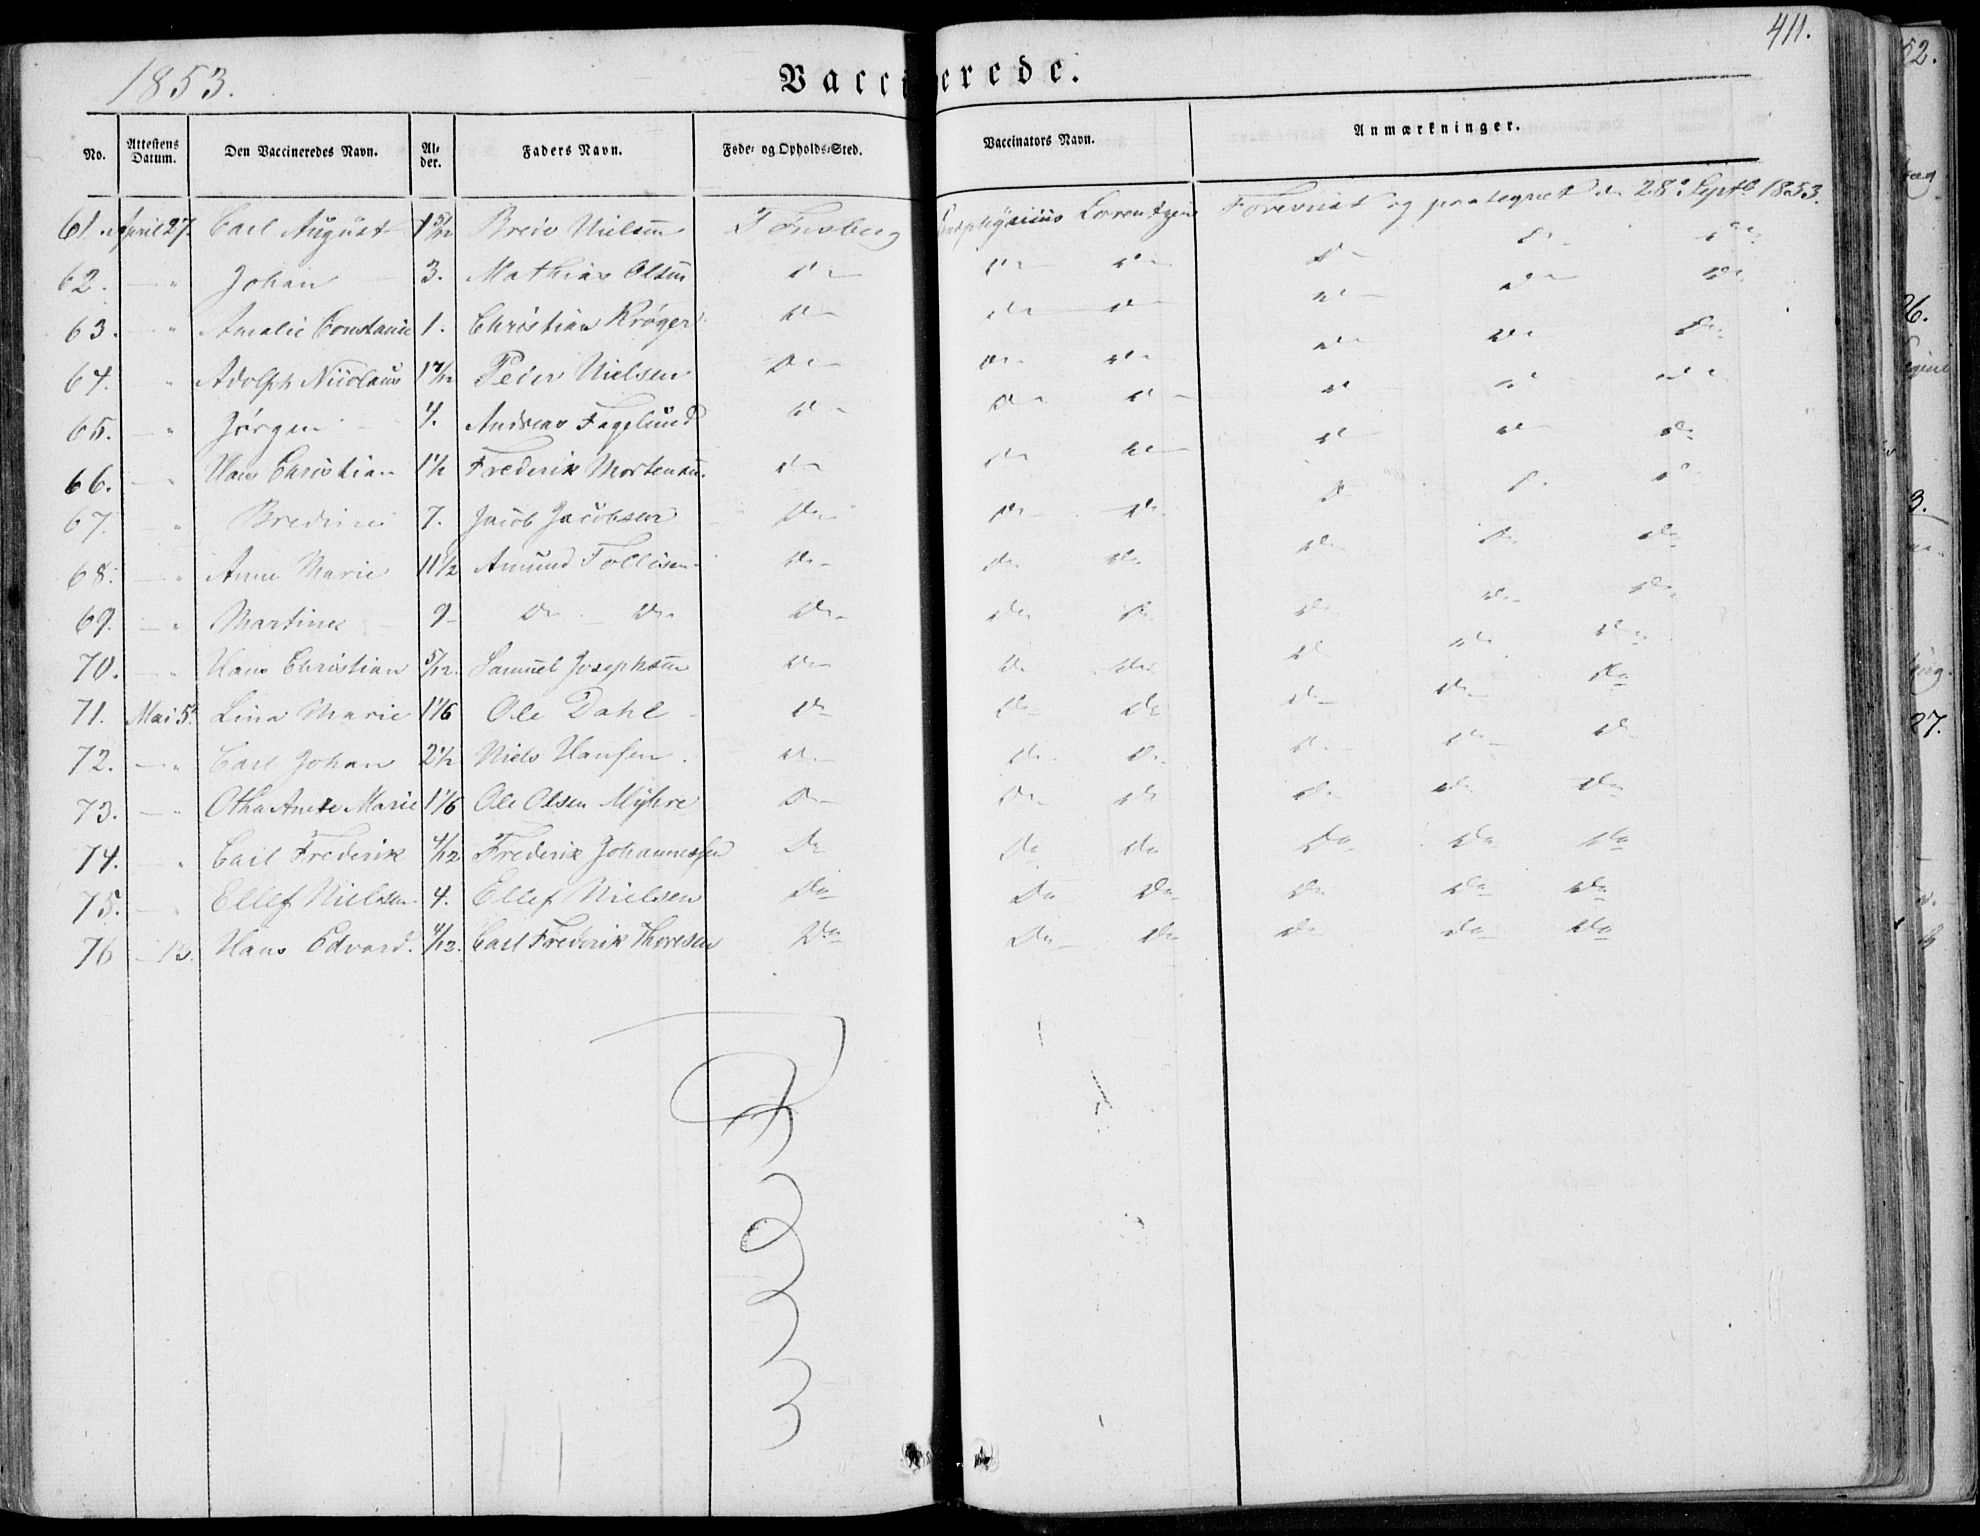 1853. Vaccinerede. 411.
No. Attestens Datum. Den Vaccineredes Navn. Al-der. Faders Navn. Føde- og Opholds-Sted. Vaccinators Navn. Anmærkninger.
61. April 27. Carl August 1 5/12 Nielsen Tønsberg Lorentzen Forevist og paategnet d. 28de Septb 1853.
62. — " Johan — 3. Mathias Olsen Do — Do — Do — Do — Do Do
63. — " Amalie Constance 1. Christian Krøger Do — Do — Do — Do — Do — Do
64. " Adolph Nicolaus 1 7/12 Peder Nielsen Do — Do — Do — Do — Do — Do
65. — " Jørgen — 4. Andreas Fagelund Do — Do — Do — Do Do — Do
66. — " Hans Christian 1 1/2 Frederik Mortensen. Do — Do Do — Do — Do — Do
67. — " Bredine 7. Jacob Jacobsen Do — Do — Do — Do Do Do
68. — " Anne Marie 11 1/2 Amund Tollisen Do — Do Do — Do Do Do
69. — " Martine — 9 — Do — Do — Do — Do Do Do Do — Do
70. — " Hans Christian 5/12. Samuel Josephsen Do — Do Do Do Do Do
71. Mai 5. Lina Marie 1 1/6 Ole Dahl — Do Do — Do Do — Do — Do
72. — " Carl Johan 2 1/2 Niels Hansen. Do — Do — Do — Do — Do — Do
73. — " Otha Anette Marie 1 1/6 Ole Olsen Myhre Do — Do — Do Do — Do Do
74. — " Carl Frederik 4/12 Frederik Johannessen Do Do Do Do Do Do
75. — " Ellef Nielsen. 4. Ellef Nielsen Do Do — Do Do Do Do
76 — 13. Hans Edvard. 4/12. Carl Frederik Thoresen Do Do — Do Do — Do — Do